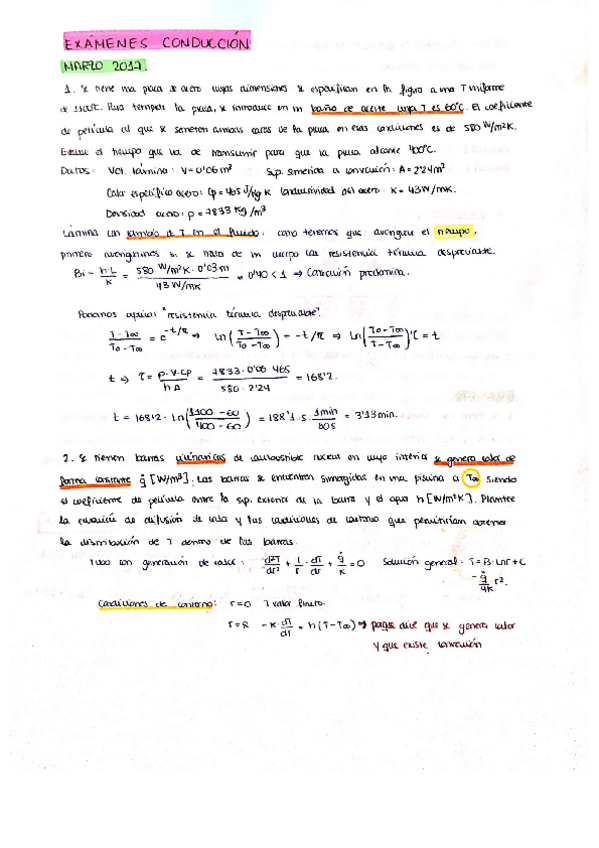 EXÁMENES CONDUCCIÓN
MARZO 2017.
1. Se tiene una placa de acero cuyas dimensiones se especifican en la figura a una T uniforme
de 1100ºC. Para templar la placa, se introduce en un baño de aceite cuya T es 60ºC. El coeficiente
de película al que se someten ambas caras de la placa en esas condiciones es de 580 W/m²K.
el tiempo que ha de transcurrir para que la placa alcance 400ºC.
Datos: Vol. lámina: V=0'06 m³ Sup. sometida a convección: A=2'24m²
Calor específico acero: Cp=465 J/kg K Conductividad del acero: K=43W/mK.
Densidad acero: ρ=7833 Kg/m³
Lámina con cambio de T en el fluido: como tenemos que averiguar el tiempo,
primero averiguamos si se trata de un cuerpo con resistencia térmica despreciable.
Bi = h·L/K = 580 W/m²K · 0'03m / 43 W/mK = 0'40 < 1 → Convección predomina.
"resistencia térmica despreciable".
T-T∞/To-T∞ = e^-t/τ → ln(T-T∞/To-T∞) = -t/τ → ln(To-T∞/T-T∞)·τ = t
t → τ = ρ·V·Cp/h·A = 7833·0'06·465/580·2'24 = 168'2.
t = 168'2 · ln(1100-60/400-60) = 188'1 s · 1min/60s = 3'13 min.
2. Se tienen barras cilíndricas de combustible nuclear en cuyo interior se genera calor de
forma constante q̇ [W/m³]. Las barras se encuentran sumergidas en una piscina a T∞ siendo
el coeficiente de película entre la sup. exterior de la barra y el agua h [W/m²K]. Plantee
la ecuación de difusión de calor y las condiciones de contorno que permitirían obtener
la distribución de T dentro de las barras.
Tubo con generación de calor: d²T/dr² + 1/r · dT/dr + q̇/K = 0 Solución general: T=B·Lnr+C
- q̇/4K r².
Condiciones de contorno: r=0 T valor finito.
r=R -K·dT/dr = h(T-T∞) → porque dice que se genera calor
y que existe convección